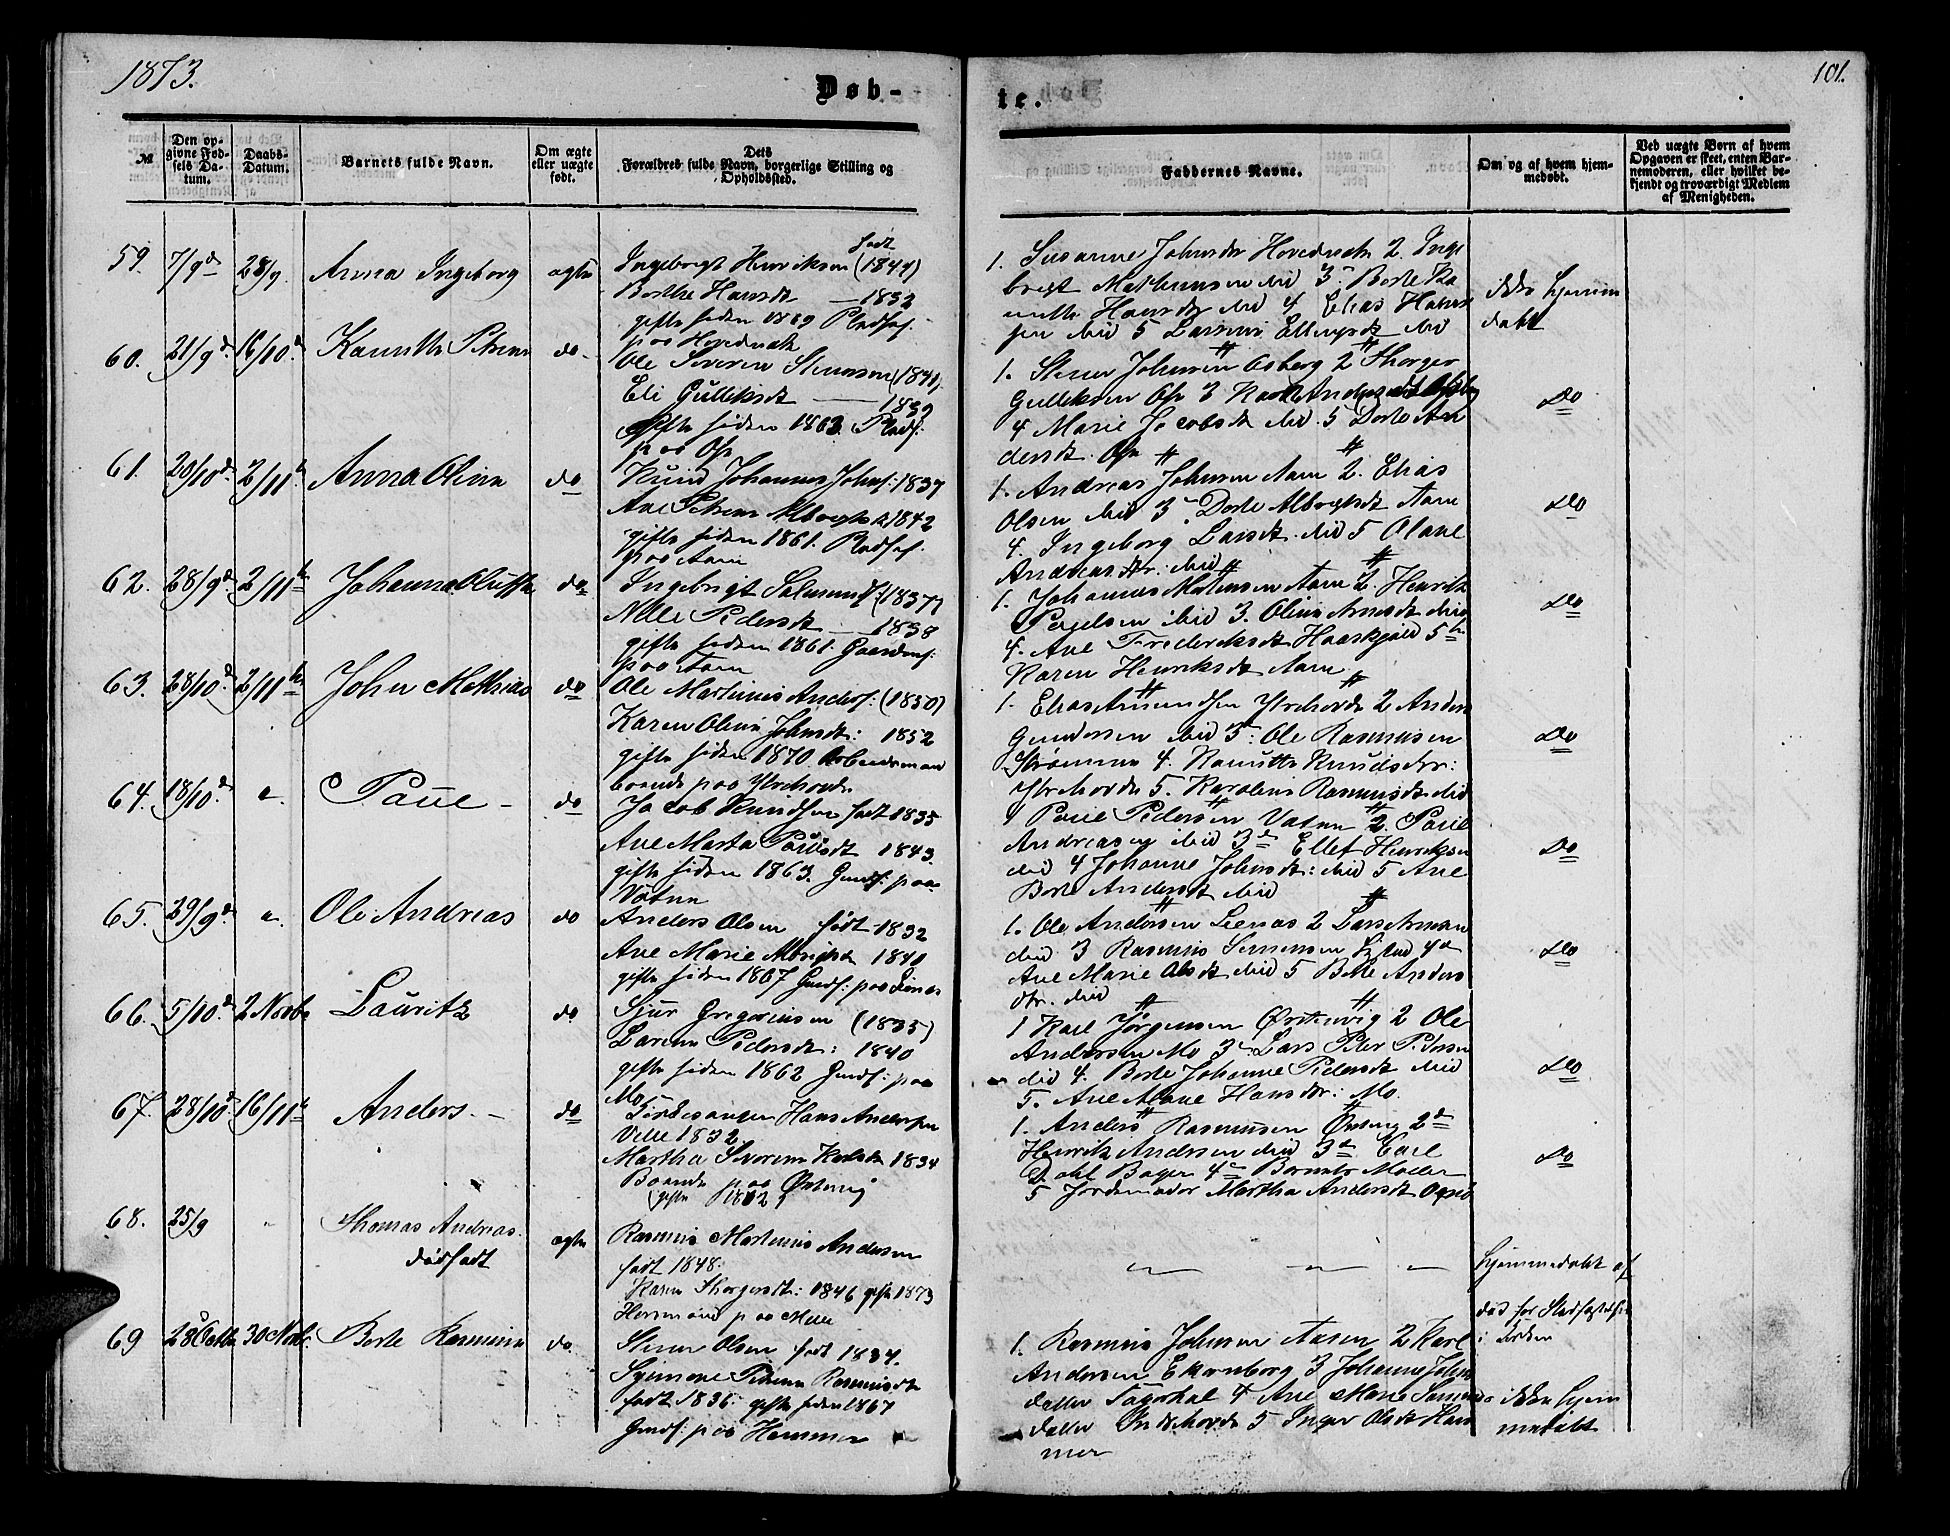 1873.
Døb-
№
Den op-
givne Fød-
sels Da-
tum.
Daabs-
Datum.
Barnets fulde Navn.
Om ægte
eller uægte
født.
Dets
Forældres fulde Navn, borgerlige Stilling og
Opholdssted.
59. 7/9 28/9 Anna Ingeborg ægte
Ingebrigt Henriksen født (1844)
Berthe Hansdt — 1833
gifte siden 1869 Pladsf.
paa Hovednak
60. 21/9 16/10 Kanutte Petrine do
Ole Severin Steensen (1840)
Eli Gulliksdt — 1839
gifte siden 1863 Pladsf.
paa
61. 20/10 2/11 Anna Oline do
Knud Johannes Johnsf. 1837
Ane Petrine Albregtsdt 1842
gifte siden 1861. Pladsf.
paa Aam
62. 28/9 2/11 Johanna Oluffa do
Ingebrigt (1837)
Nille Pedersdt — 1838
gifte siden 1861. Gaardmf.
paa Aam
63. 28/10 2/11 John Mathias do
Ole Martinus Andersf. (1850)
Karen Oline Johnsdt: 1852
gifte siden 1870 Arbeidsmand
boende paa Ytrehovde
64. 18/10 " Paul do
Jacob Knudsen født 1835
Ane Marta Paulsdt 1843.
gifte siden 1863. Gmdf: paa
Vatne
65. 29/9 " Ole Andreas do
Anders Olsen født 1832
Ane Marie 1840
gifte siden 1867 Gmdf: paa
66. 5/10 2 Novbr Lauritz do
Sjur Gregoriusen (1835)
Larine Pedersdt: 1840
gifte siden 1862 Gmdf: paa
Mo
67. 28/10 16/11 Anders do
Kirkesanger Hans Andersen
Velle 1832
Martha Severine 1834
Boende paa Ørstenvig
gifte 1862
68. 25/9 " Thomas Andreas.
dødfødt ægte
Rasmus Martinus Andersen
født 1848.
Karen Thorgersdt: 1846 gifte 1873
Huusmand paa Melle
69 28 Octbr 30 Novbr. Berte Rasmine do.
Steen Olsen født 1834.
Petrine Rasmusdt
født 1836. gifte siden 1867
Gmdf: paa Hammer
101.
te.
Faddernes Navne.
Om og af hvem hjem-
medøbt.
Ved uægte Børn af hvem
Opgaven er skeet, enten Bar-
nemoderen, eller hvilket be-
kjendt og troværdigt Medlem
af Menigheden.
1. Susanne Johnsdtr Hovednak 2. Inge
brigt Mathiassen ibid 3. Berte Ka
nutte Hansdtr ibid 4 Elias Hansen
ibid 5 Ellingsdt ibid
ikke hjemme
døbt
1. Steen Johnsen Aasberg 2 Thorger
Gulliksen 3
4 Marie Jacobsdt ibid. 5 Dorte An
dersdt.
Do
1. Andreas Johnsen Aam 2. Elias
Olsen ibid 3 Dorte Albregtsdt Aam
4. Ingeborg Larsdt. ibid 5 Olave
Andreasdtr. ibid
Do
1. Johannes Aam 2. Henrik
ibid 3. Oline ibid
4. Ane Frederiksdt Haaskjold 5
Karen Henriksdt Aam
Do
1. Elias Amundsen Ytrehovde 2 Anders
Gundersen ibid 3: Ole Rasmusen
Strømme 4. Kanutte Knudsdtr:
Ytrehovde 5. Karoline Rasmusdt ibid
Do
1 Paul Pedersen Vatne 2. Paul
Andreasen ibid 3 Ellef Henriksen
ibid 4 Johanne Johnsdt: ibid 5 Ane
Berte Andersdt ibid
Do
1. Ole Andersen 2
ibid 3 Rasmus
Ane Marie Olsdt ibid 5 Berte Anders
dtr. ibid
Do
1 Karl Jørgensen Ørstenvig 2 Ole
Andersen Mo 3 Lars Peter Pedersen
ibid 4. Berte Johanne Pedersdt ibid
5. Ane Marie Hansdtr: Mo.
Do
1. Anders Rasmusen Ørstenvig 2
Henrik Andersen ibid 3 Carl
Dahl Bager 4 Barnets Moder
5 Jordemoder Martha Andersdt
Do
hjemmedøbt af
død for Stadfæstelse
i Kirken
1. Rasmus Johnsen Aasen 2 Karl
Andersen Ekornberg 3 Johanne Johns
datter 4 Ane Marie
datter Indrehovde 5 Inger Olsdt Ham
mer
ikke hjem
medøbt